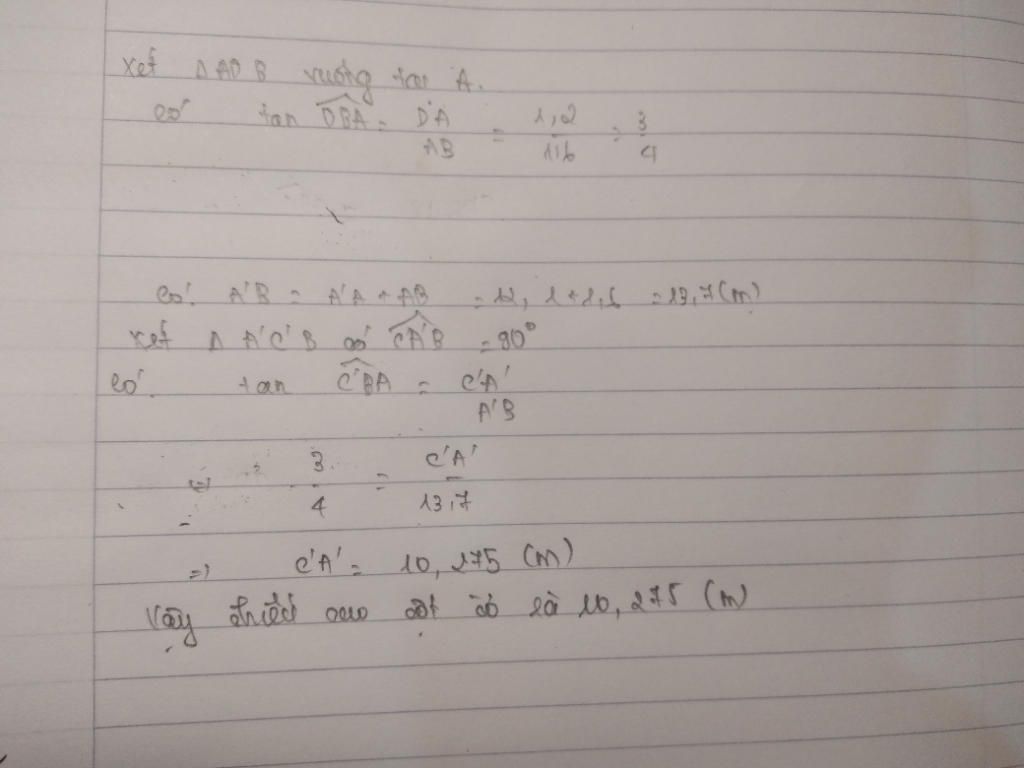 Xét Δ ADB vuông tại A.
có tan DBA = DA/AB = 1,2/1,6 = 3/4
có: A'B = A'A + AB = 12,1 + 1,6 = 13,7 (m)
xét Δ A'C'B có CA'B = 90°
có: tan C'BA = C'A'/A'B
⇔ 3/4 = C'A'/13,7
⇒ C'A' = 10,275 (m)
Vậy chiều cao cột đó là 10,275 (m)